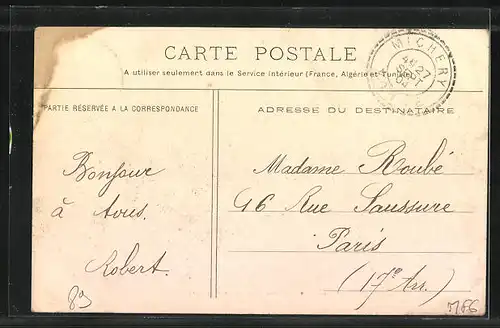 CARTE POSTALE
A utiliser seulement dans le Service intérieur (France, Algérie et Tunisie)
MICHERY
27
PARTIE RÉSERVÉE A LA CORRESPONDANCE
ADRESSE DU DESTINATAIRE
Bonjour
à tous.
Robert.
Madame Roubé
96 Rue Saussure
Paris
(17e Arr.)